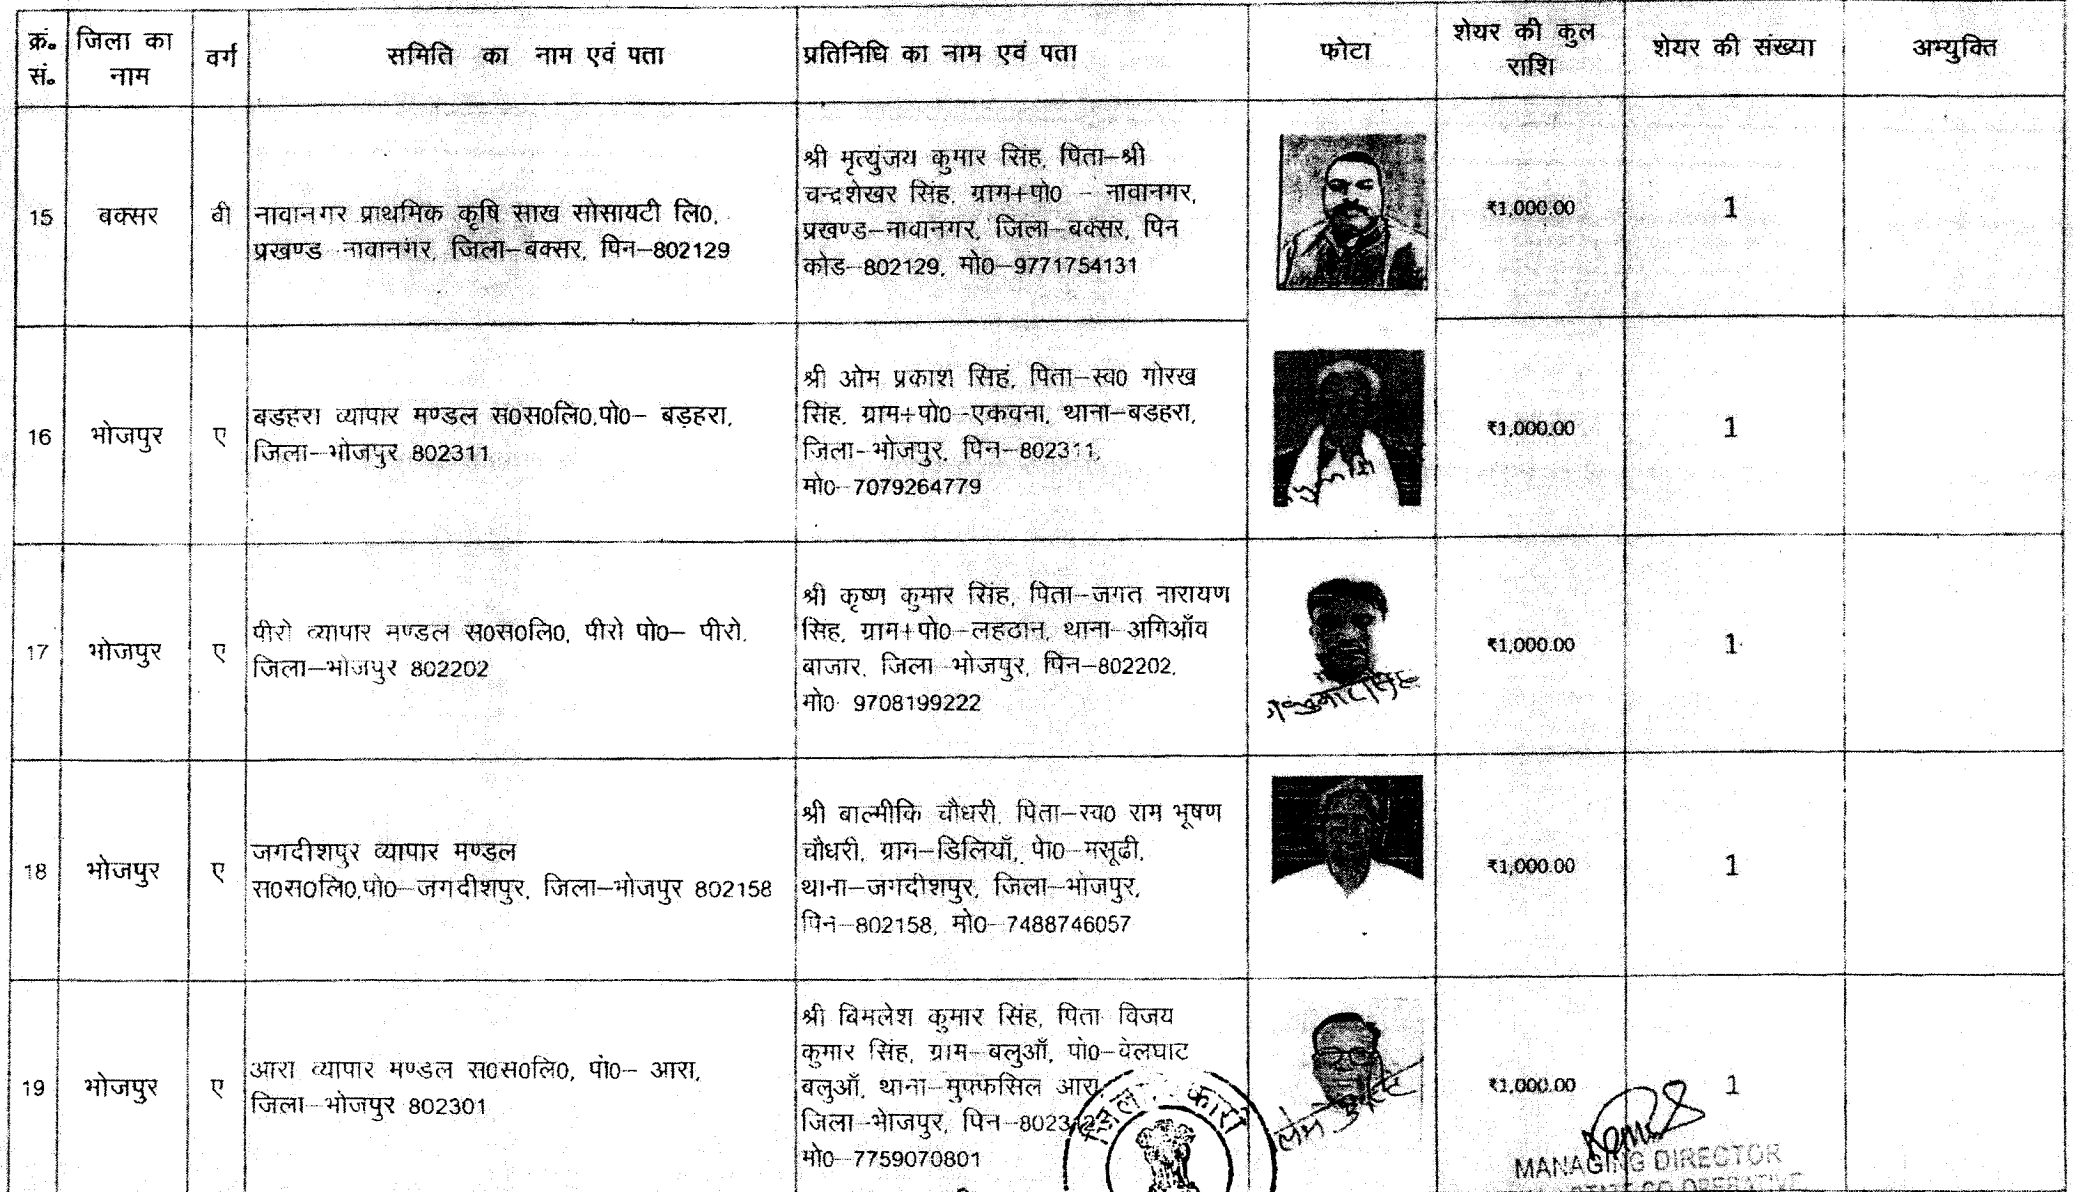 क्रं॰ सं॰ जिला का नाम वर्ग समिति का नाम एवं पता प्रतिनिधि का नाम एवं पता फोटा शेयर की कुल राशि शेयर की संख्या अभ्युक्ति
15 बक्सर बी
नावानगर प्राथमिक कृषि साख सोसायटी लि0,
प्रखण्ड नावानगर, जिला–बक्सर, पिन–802129
श्री मृत्युंजय कुमार सिंह, पिता–श्री
चन्द्रशेखर सिंह, ग्राम+पो0 – नावानगर,
प्रखण्ड–नावानगर, जिला–बक्सर, पिन
कोड–802129, मो0–9771754131
₹1,000.00 1
16 भोजपुर ए
बडहरा व्यापार मण्डल स0स0लि0,पो0– बड़हरा,
जिला–भोजपुर 802311
श्री ओम प्रकाश सिहं, पिता–स्व0 गोरख
सिंह, ग्राम+पो0–एकवना, थाना–बडहरा,
जिला–भोजपुर, पिन–802311,
मो0–7079264779
₹1,000.00 1
17 भोजपुर ए
पीरो व्यापार मण्डल स0स0लि0, पीरो पो0– पीरो,
जिला–भोजपुर 802202
श्री कृष्ण कुमार सिंह, पिता–जगत नारायण
सिंह, ग्राम+पो0–लहठान, थाना–अगिआँव
बाजार, जिला भोजपुर, पिन–802202,
मो0 9708199222
₹1,000.00 1
18 भोजपुर ए
जगदीशपुर व्यापार मण्डल
स0स0लि0,पो0–जगदीशपुर, जिला–भोजपुर 802158
श्री बाल्मीकि चौधरी, पिता–स्व0 राम भूषण
चौधरी, ग्राम–डिलियाँ, पेा0–मसूढी,
थाना–जगदीशपुर, जिला–भोजपुर,
पिन–802158, मो0–7488746057
₹1,000.00 1
19 भोजपुर ए
आरा व्यापार मण्डल स0स0लि0, पो0– आरा,
जिला–भोजपुर 802301
श्री बिमलेश कुमार सिंह, पिता विजय
कुमार सिंह, ग्राम–बलुआँ, पो0–वेलघाट
बलुआँ, थाना–मुफ्फसिल आरा
जिला–भेाजपुर, पिन
मो0–7759070801
₹1,000.00 1
MANAGING DIRECTOR